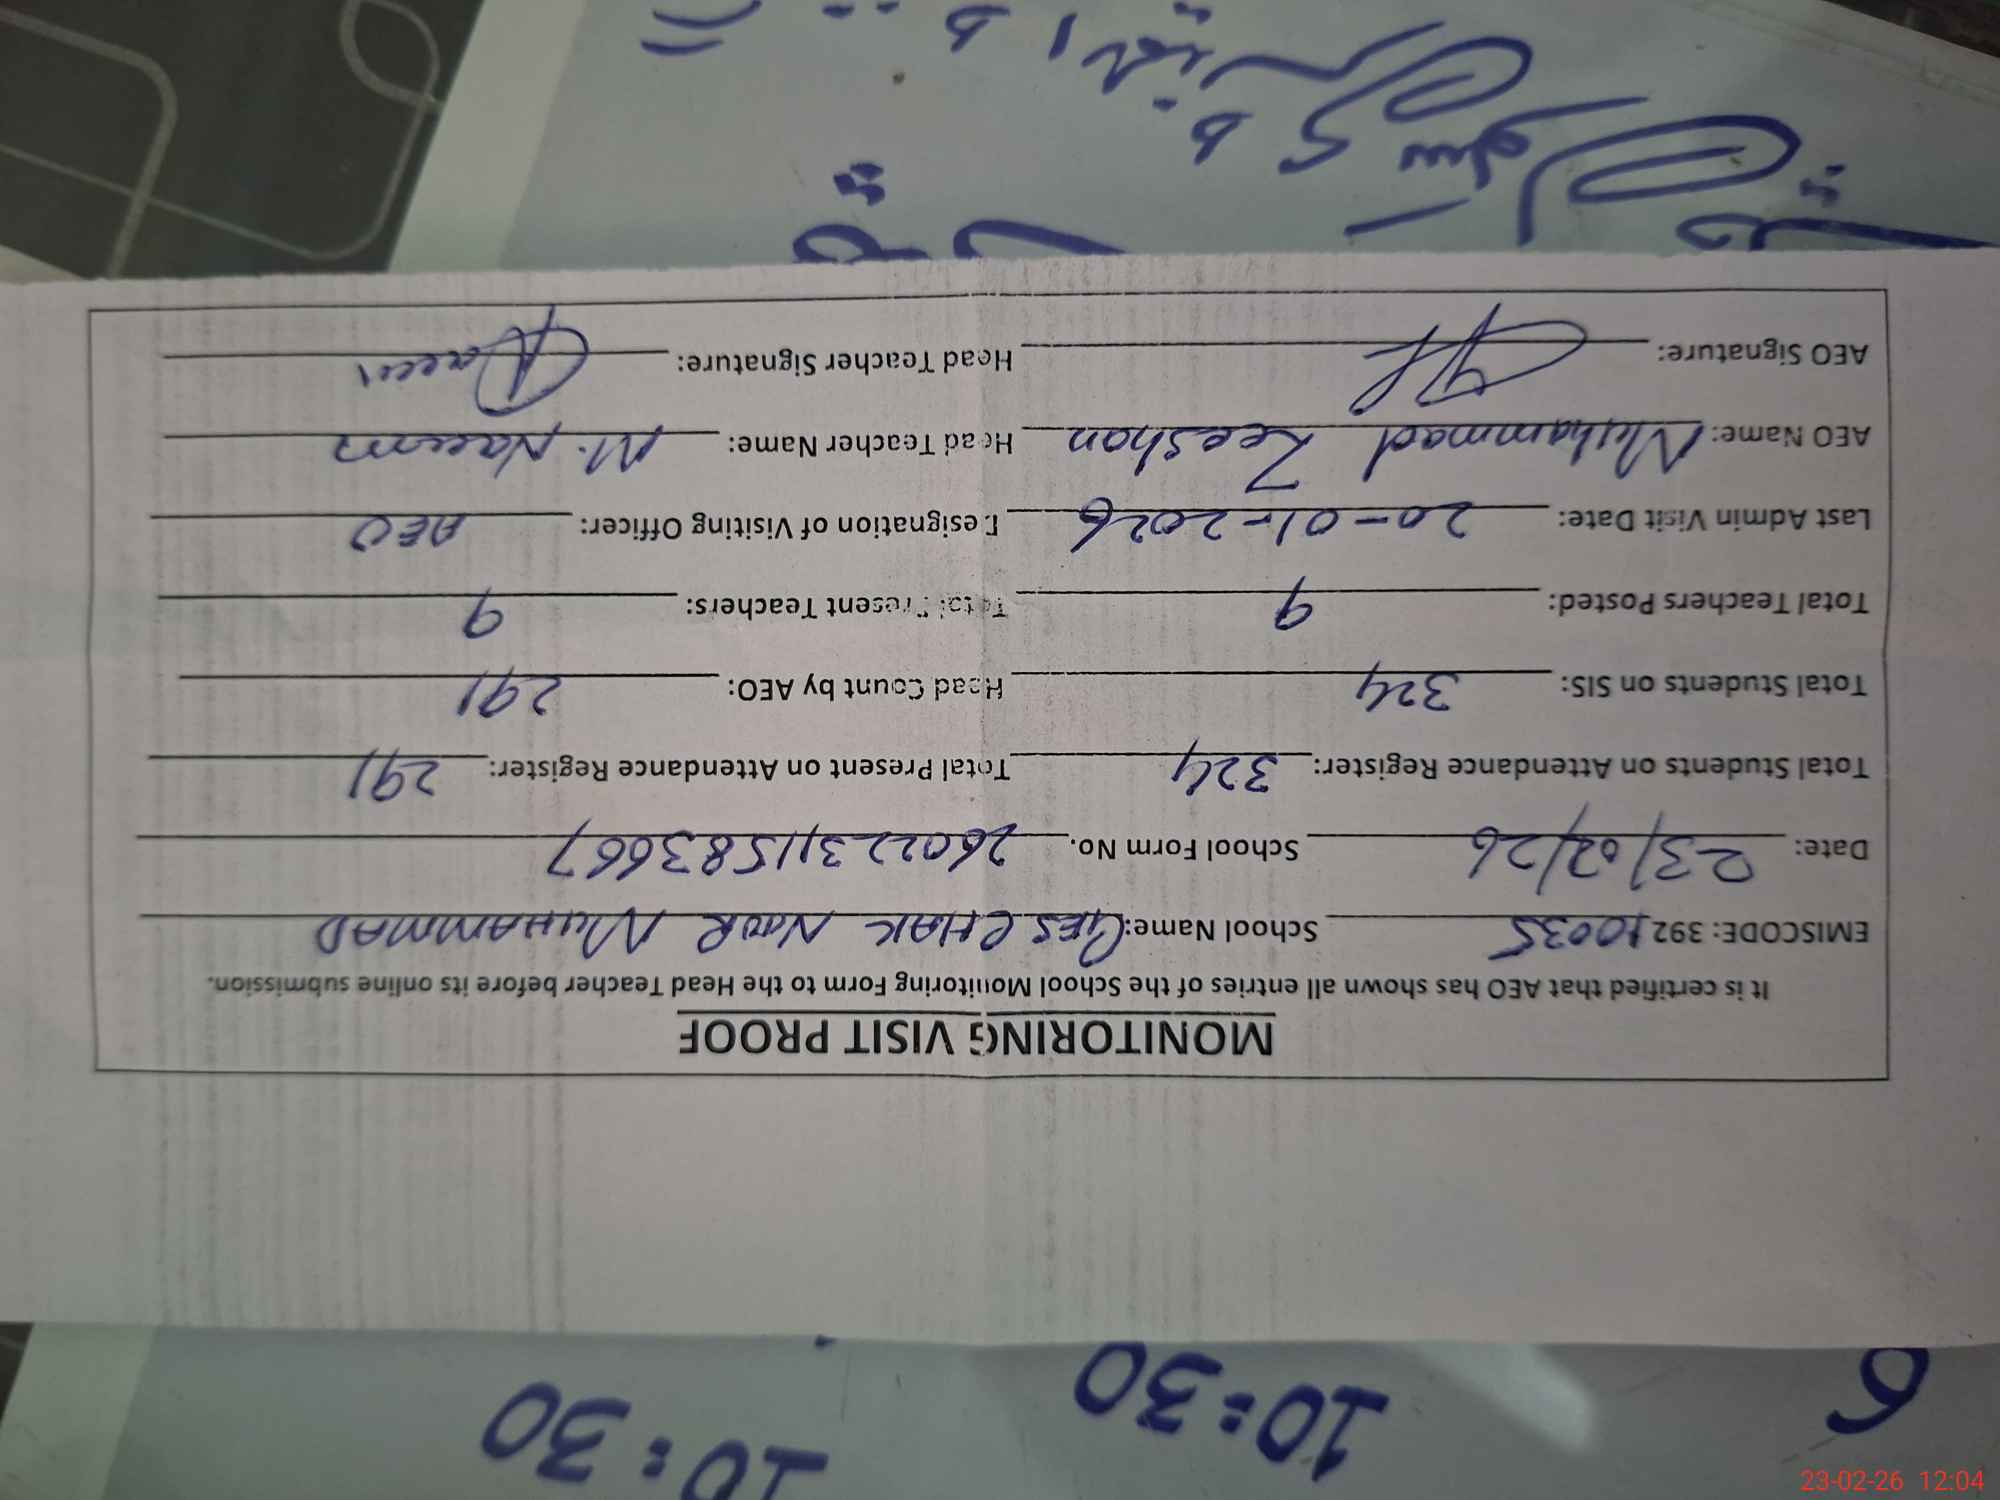 MONITORING VISIT PROOF
It is certified that AEO has shown all entries of the School Monitoring Form to the Head Teacher before its online submission.
EMISCODE: 39210035 School Name: GES CHAK NOOR MUHAMMAD
Date: 23/02/26 School Form No. 26022311583667
Total Students on Attendance Register: 324 Total Present on Attendance Register: 291
Total Students on SIS: 324 Head Count by AEO: 291
Total Teachers Posted: 9 Total Present Teachers: 9
Last Admin Visit Date: 20-01-2026 Designation of Visiting Officer: AEO
AEO Name: Muhammad Zeeshan Head Teacher Name: M. Naeem
AEO Signature: Head Teacher Signature: Naeem
10:30 10:30
23-02-26 12:04